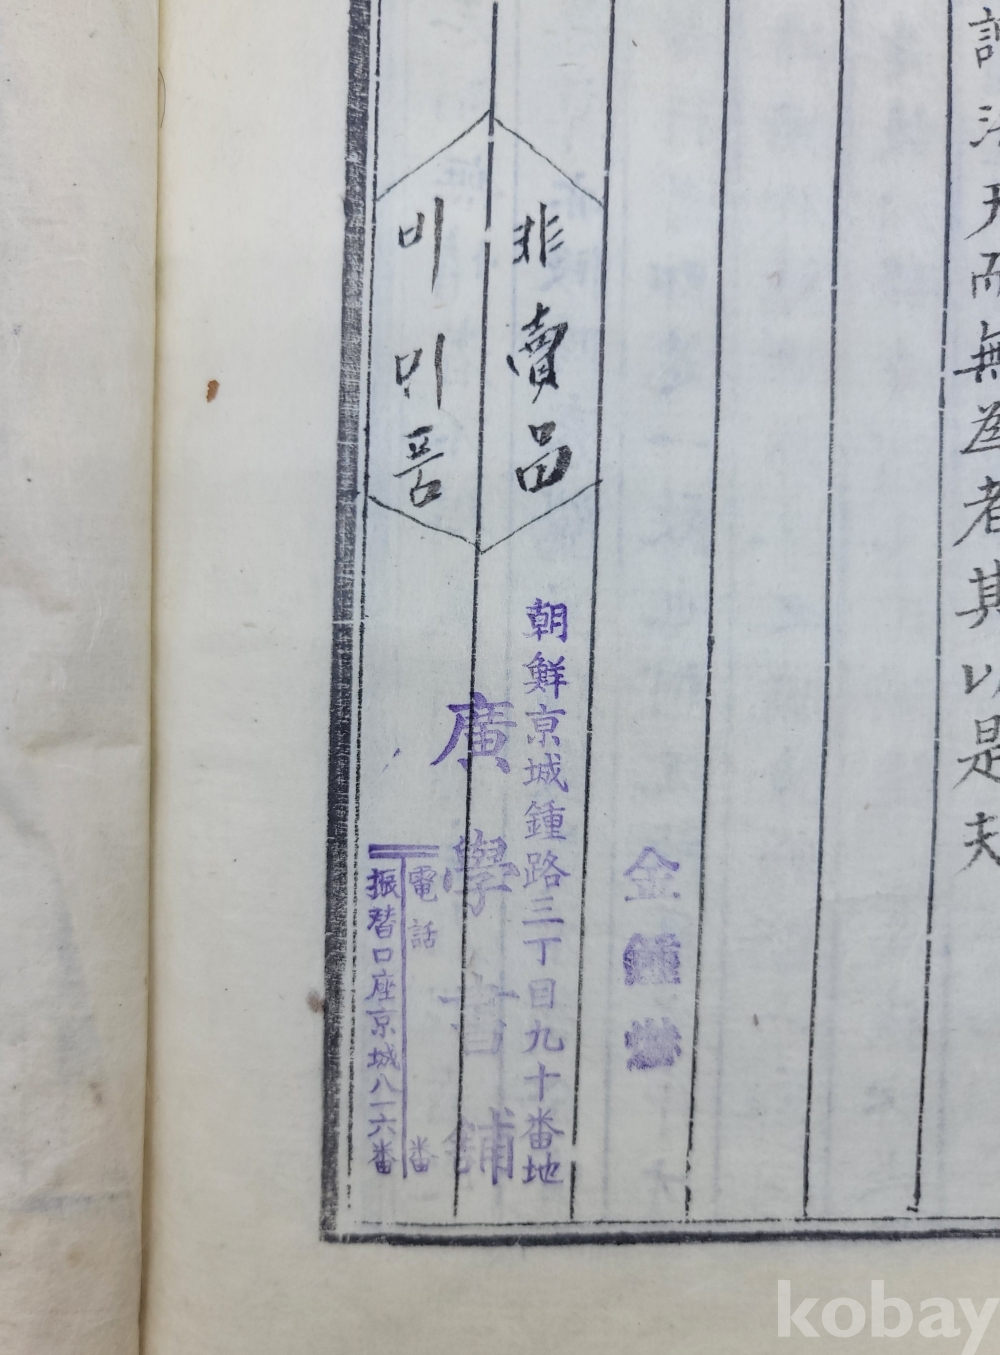 法天而無為者其以是夫
金鍾
非賣品
비ᄆᆡ품
朝鮮京城鍾路三丁目九十番地
廣學書鋪
電話 番
振替口座京城八一六番
kobay